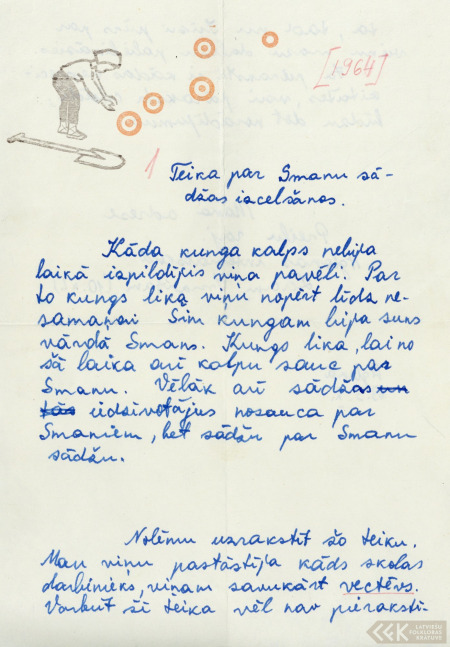 [1964]
1 Teika par Smanu sā-
džas izcelšanos.
Kāda kunga kalps nebija
laikā izpildījis viņa pavēli. Par
to kungs lika viņu nopērt līdz ne-
samaņai Šim kungam bija suns
vārdā Smans. Kungs lika, lai no
šā laika arī kalpu sauc par
Smanu. Vēlāk arī sādžas un
tās iedzīvotājus nosauca par
Smaniem, bet sādžu par Smanu
sādžu.
Nolēmu uzrakstīt šo teiku.
Man viņu pastāstīja kāds skolas
darbinieks, viņam savukārt vectēvs.
Varbūt šī teika vēl nav pierakstī-
LFK LATVIEŠU
FOLKLORAS
KRĀTUVE